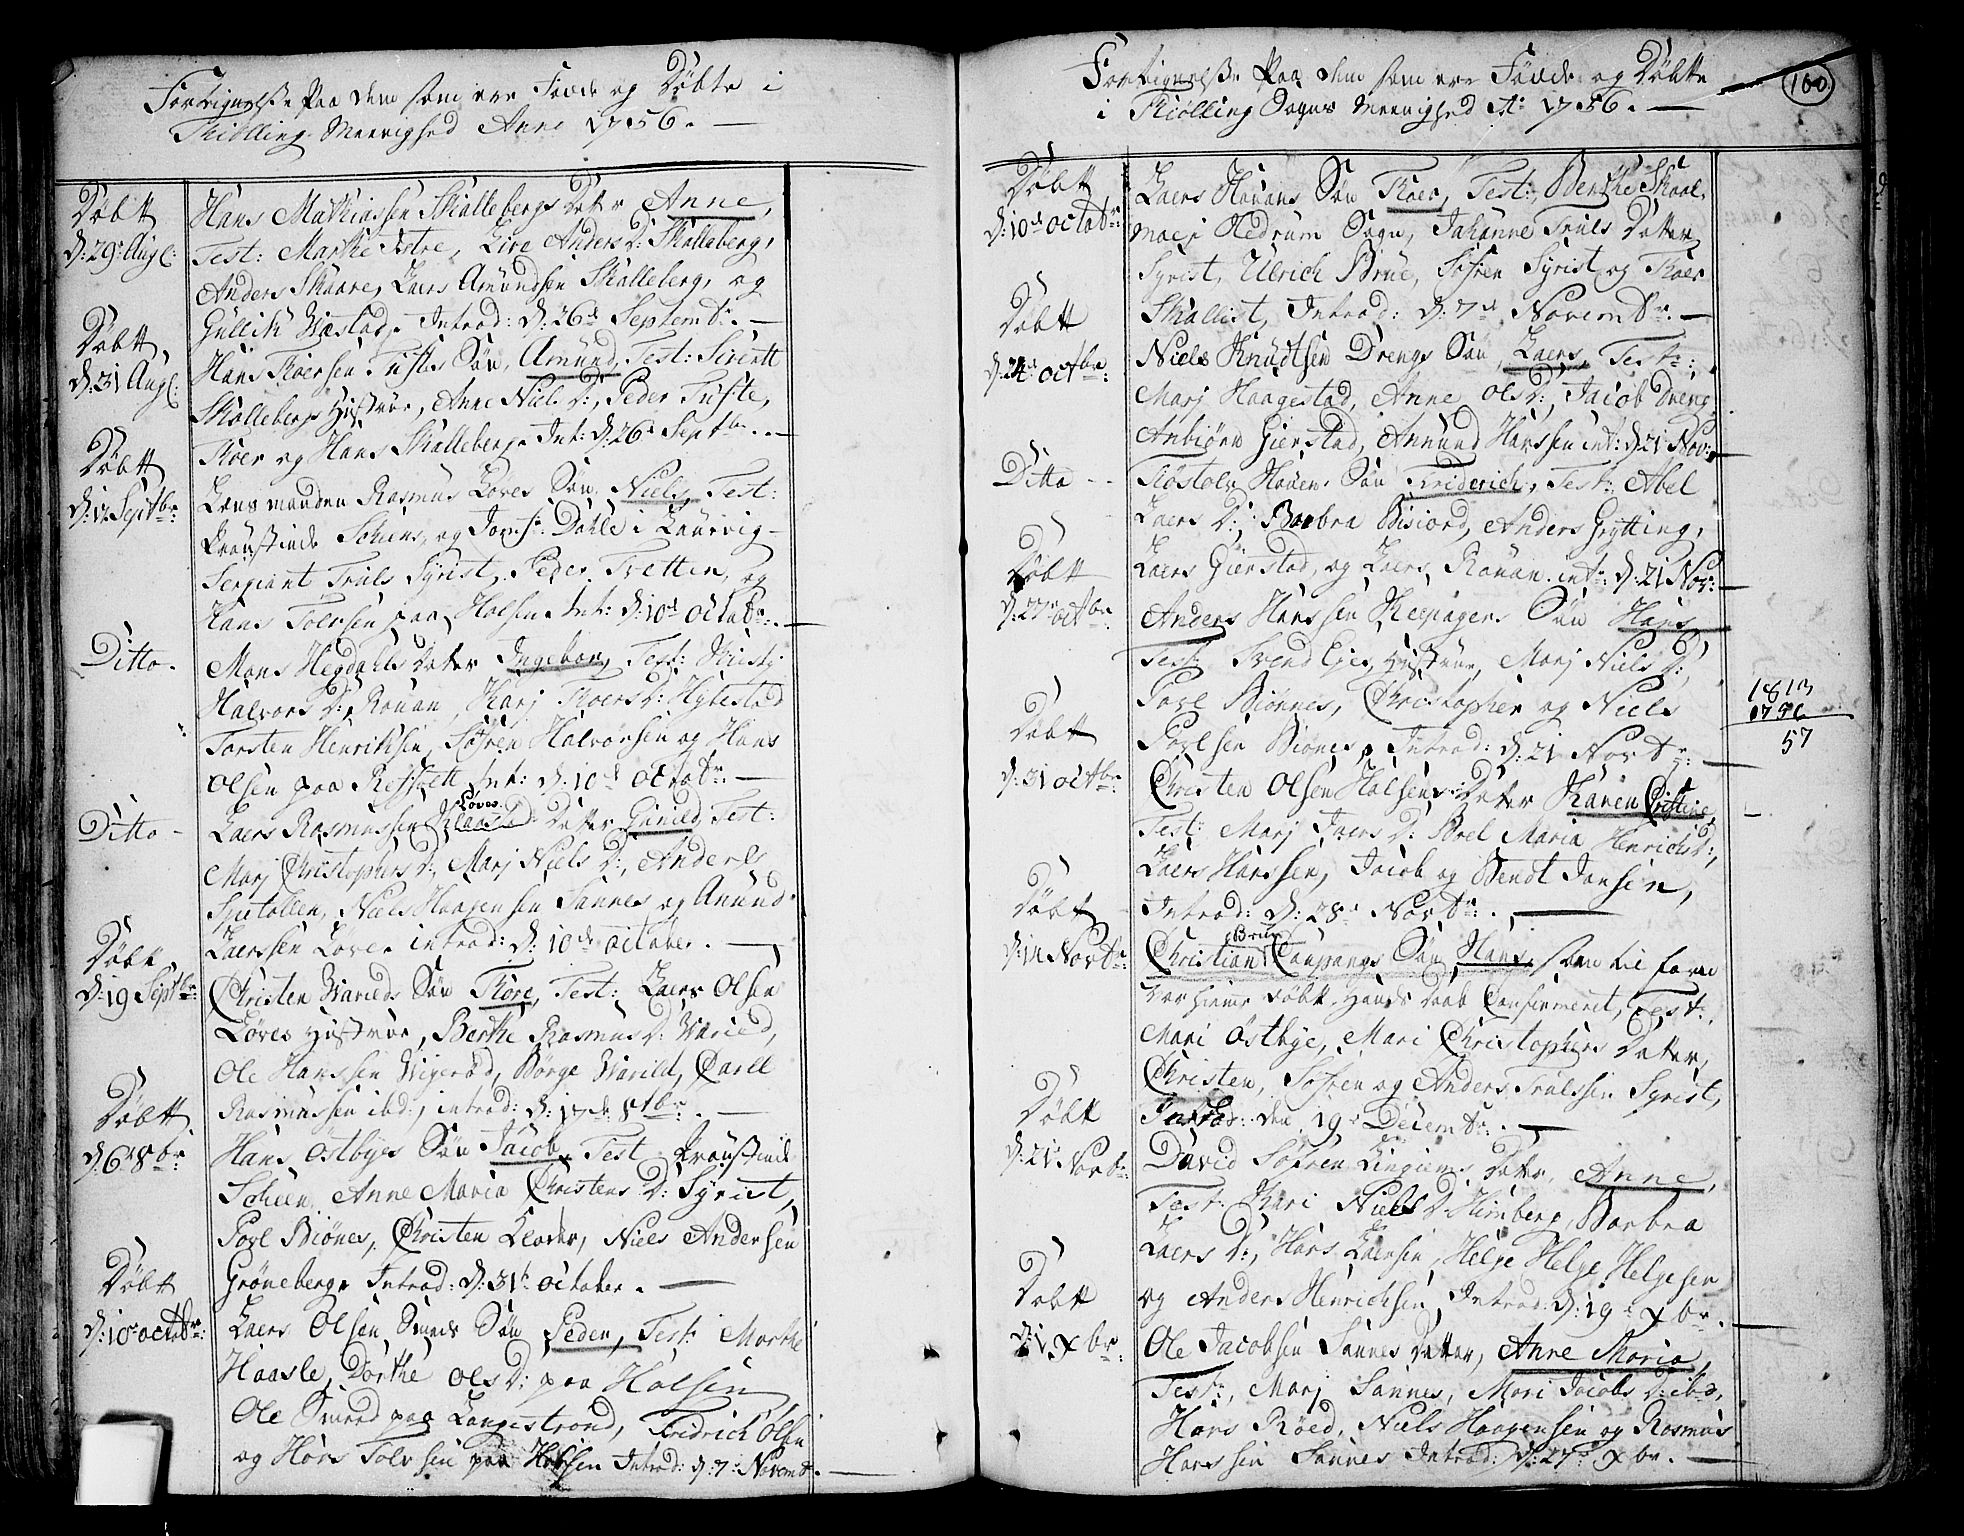 Fortegnelße paa dem som ere Fødde og Døbte i
Thiølling Meenighed Anno 1756.
Døbt
d: 29 Aug:
Hans Mathiassen Skallebergs Datter Anne,
Test: Marthe Istre, Live Anders D: Skalleberg,
Anders Skaare, Laers Amundsen Skalleberg, og
Gullich Wæstad, Introd: d: 26de Septembr.
Døbt
d: 31 Aug:
Hans Thoersen Tufte Søn, Amund, Test: Sivertt
Skallebergs Hustrue, Anne Niels D:, Peder Tufte,
Thoer og Hans Skalleberg. Int: d: 26 Septbr.
Døbt
d: 12 Septbr:
Lensmanden Rasmus Løves Søn Niels, Test:
Proustinde Schien, og Jomfr: Dahle i Laurvig
Sergiant Truls Syrist, Peder Tvetten, og
Hans Tolvsen paa Halsen Int: d: 10de Octobr.
Ditto
Mons Hegdahls Datter Ingebor, Test:
Halvors D: Rouan, Kari Thoers D: Hybestad
Torsten Henrichsen, Søfren Halvorsen og Hans
Olsen paa Refsholtt Int: d: 10de Octobr.
Ditto
Løves
Laers Rasmussen Klaastad Datter Gunild, Test:
Marj Christophers D:, Marj Niels D:, Anders
Spetallen, Niels Haagensen Sannes og Amund
Laerssen Løve. introd: d: 10de October.
Døbt
d: 19 Septbr:
Christen Warilds Søn Thore, Test: Laers Olsen
Løves Hustrue, Berthe Rasmus D: Warild,
Ole Hanssen Wigerød, Børge Warild, Carll
Rasmussen ibd:, introd: d: 17de 8tbr.
Døbt
d: 6te 8br:
Hans Østbyes Søn Jacob, Test: Proustinde
Schien, Anne Maria Christens D: Syrist,
Povl Biønes, Christen Klaever, Niels Andersen
Grøneberg, Introd: d: 31te October.
Døbt
d: 10de octobr:
Laers Olsen Smeds Søn Peder, Test: Marthe
Haasle, Dorthe Ols D: paa Halsen
Ole Smed paa Langestrand, Fridrich Olsen
og Hans Tolvsen paa Halsen Introd: d: 7: Novembr.
Fortegnelße paa dem som ere Fødde og Døbte
i Thiølling Sogns Meenighed Ao 1756.
100.
Døbt
d: 10de octobr:
Laers Houans Søn Thoer, Test: Berthe Skaal-
maej Hedrum Sogn, Johanne Truls Datter
Syrist, Ulrich Brue, Søfren Syrist, og Thoer
Skallist, Introd: d: 7de Novembr.
Døbt
d: 24 octbr:
Niels Knudtsen Drengs Søn, Laers, Test:,
Marj Haagestad, Anne Ols D:, Jacob Dreng
Anbiørn Gierstad, Annund Hanssen int: d: 21 Nov:
Ditto
Tiøstoln Houen Søn Friderich, Test: Abel
Laers D:, Barbra Bisiord, Anders Grytting,
Laers Gierstad, og Laers Rouan. int: d: 21 Nov:
Døbt
d: 27 octbr:
Anders Hanssen Kiepagers Søn Hans
Test: Svend Ejes Hustrue, Marj Niels D:,
Povl Biønnes, Christopher og Niels
Povlsen Biønes, Introd: d: 21 Novbr:
1813
1756
57
Døbt
d: 31 octbr:
Christen Olsen Halsens Datter Karen Cristine,
Test: Marj Ivers D: Brel Maria Henrichs D:,
Laers Hanssen, Jacob og Bendt Jansen,
Introd: d: 28 Novbr:
Døbt
d: 14 Novbr:
Brue
Christian Caupangs Søn Hans, som til forn
var hiemme døbt, Hands daab Confirmeret, Test:
Mari Østbye, Mari Christophers Datter,
Christen, Søfren og Anders Trulssen Syrist,
Introd: den 19de Decembr.
Døbt
d: 21 Novbr:
David Søfren Lingiems Datter, Anne,
Test: Kari Niels D: Himberg, Barbra
Laers D:, Hans Laersen, Helge Helge Helgesen
og Anders Henrichsen Introd: d: 19de Xbr.
Døbt
d: 1 Xbr:
Ole Jacobsen Sannes Datter, Anne Maria,
Test:, Marj Sannes, Mari Jacobs D: ibd,
Hans Røed, Niels Haagensen og Rasmus
Hanssen Sannes Introd: d: 27de Xbr.